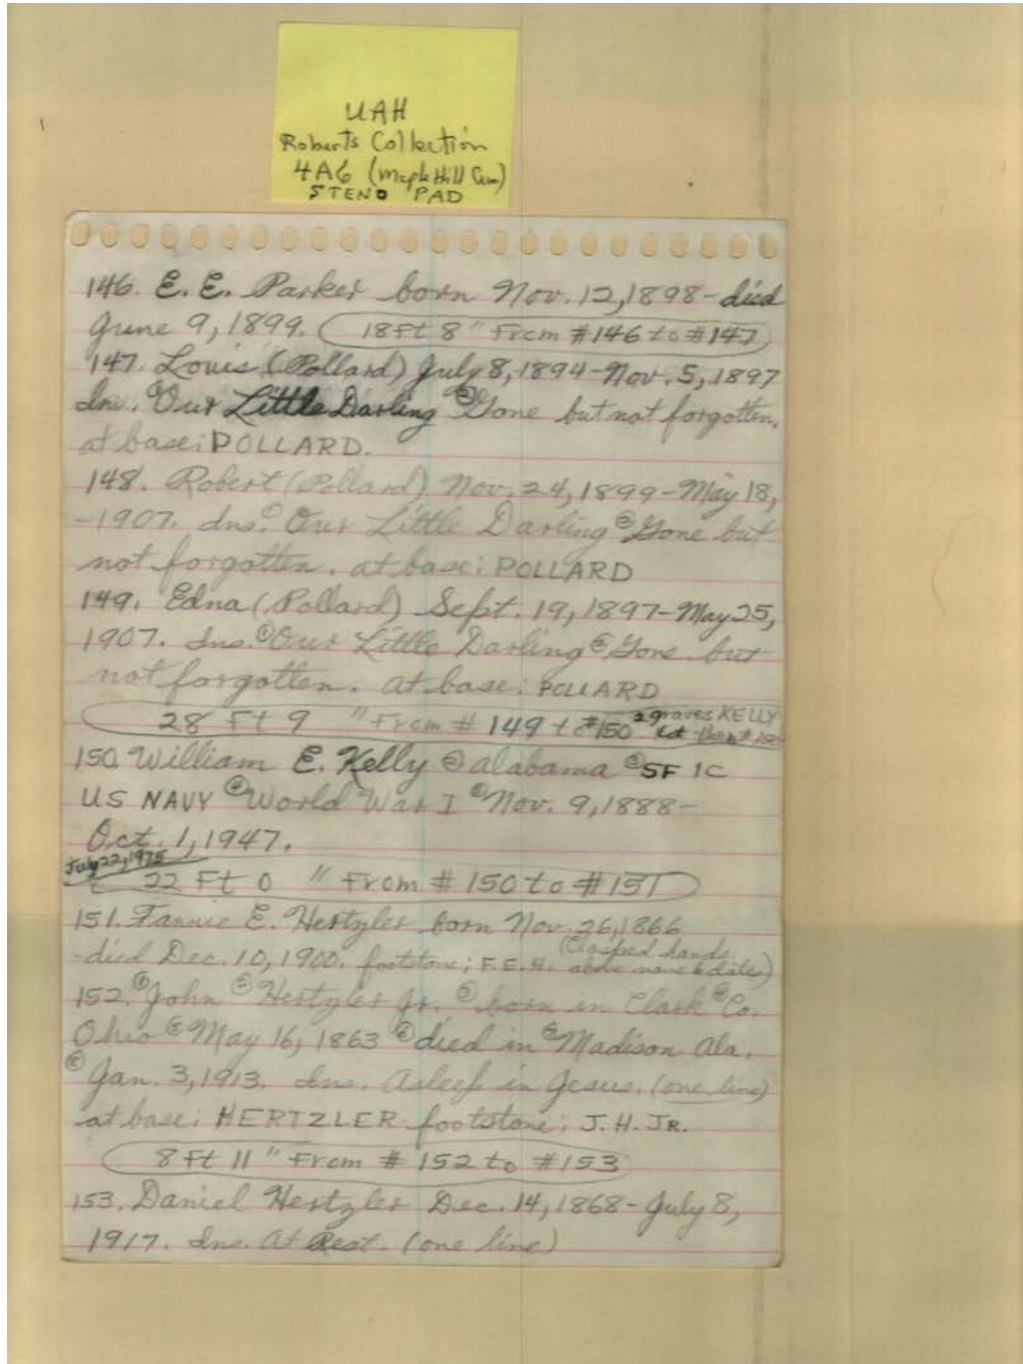 UAH
Roberts Collection
4A6 (Maple Hill Cem)
STENO PAD
146. E. E. Parker born Nov. 12, 1898 - died
June 9, 1899. 18 Ft 8 " From #146 to #147
147. Louis (Pollard) July 8, 1894 - Nov. 5, 1897
Ins. ① Our Little Darling ② Gone but not forgotten.
at base: POLLARD.
148. Robert (Pollard) Nov. 24, 1899 - May 18,
-1907. Ins. ① Our Little Darling ② Gone but
not forgotten. at base: POLLARD
149. Edna (Pollard) Sept. 19, 1897 - May 25,
1907. Ins. ① Our Little Darling ② Gone but
not forgotten. at base: POLLARD
28 Ft 9 " From # 149 to #150 2 graves KELLY
lot #150
150. William E. Kelly ② Alabama ③ SF 1C
US NAVY ④ World War I ⑤ Nov. 9, 1888 -
Oct. 1, 1947.
July 22, 1975
22 Ft 0 " From # 150 to #151
151. Fannie E. Hertzler born Nov. 26, 1866
(Clasped hands
- died Dec. 10, 1900. footstone: F. E. H. above name & dates)
152. ① John ② Hertzler Jr. ③ born in Clark ④ Co.
Ohio ⑤ May 16, 1863 ⑥ died in ⑦ Madison Ala.
⑧ Jan. 3, 1913. Ins. Asleep in Jesus. (one line)
at base: HERTZLER footstone: J. H. JR.
8 Ft 11 " From # 152 to #153
153. Daniel Hertzler Dec. 14, 1868 - July 8,
1917. Ins. At Rest. (one line)